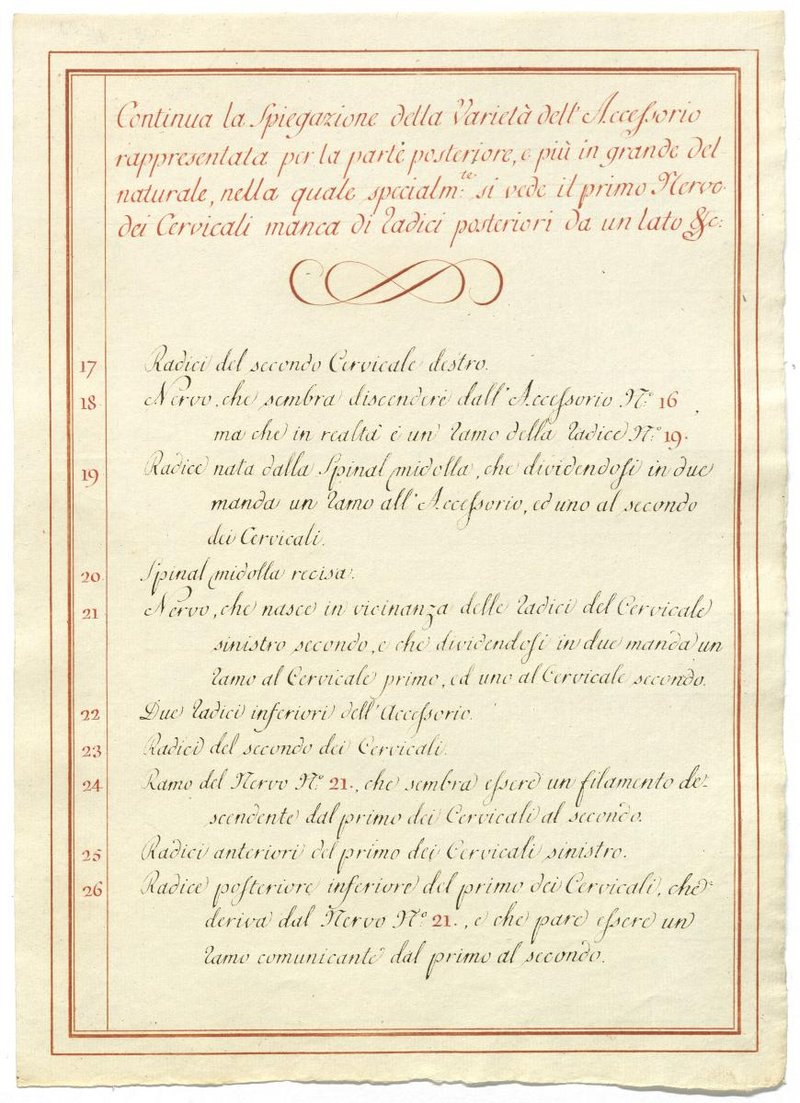 Continua la Spiegazione della Varietà dell'Accessorio
rappresentata per la parte posteriore, e più in grande del
naturale, nella quale specialm:te si vede il primo Nervo
dei Cervicali manca di radici posteriori da un lato &c:
17 Radici del secondo Cervicale destro.
18 Nervo, che sembra discendere dall'Accessorio N:o 16,
ma che in realtà è un ramo della radice N:o 19.
19 Radice nata dalla Spinal midolla, che dividendosi in due
manda un ramo all'Accessorio, ed uno al secondo
dei Cervicali.
20 Spinal midolla recisa.
21 Nervo, che nasce in vicinanza delle radici del Cervicale
sinistro secondo, e che dividendosi in due manda un
ramo al Cervicale primo, ed uno al Cervicale secondo.
22 Due radici inferiori dell'Accessorio.
23 Radici del secondo dei Cervicali.
24 Ramo del Nervo N:o 21., che sembra essere un filamento de-
scendente dal primo dei Cervicali al secondo.
25 Radici anteriori del primo dei Cervicali sinistro.
26 Radice posteriore inferiore del primo dei Cervicali, che
deriva dal Nervo N:o 21., e che pare essere un
ramo comunicante dal primo al secondo.